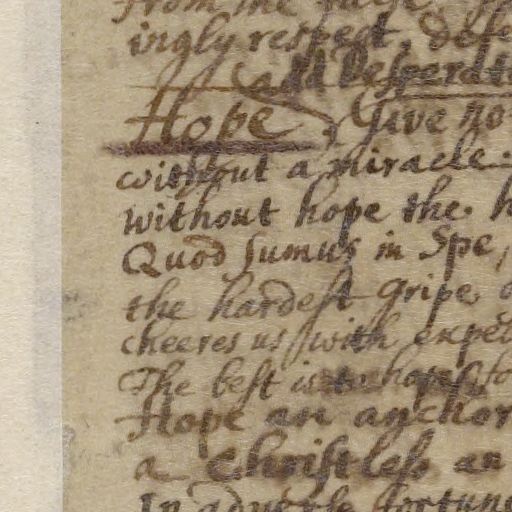 from the
ingly respect, defe
add Desperat
Hope, Give no
without a miracle.
without hope the h
Quod sumus in Spe,
the hardest gripe
cheeres us with expec
The best is to hope fo
Hope an anchor
a Christless an
In adverse fortun